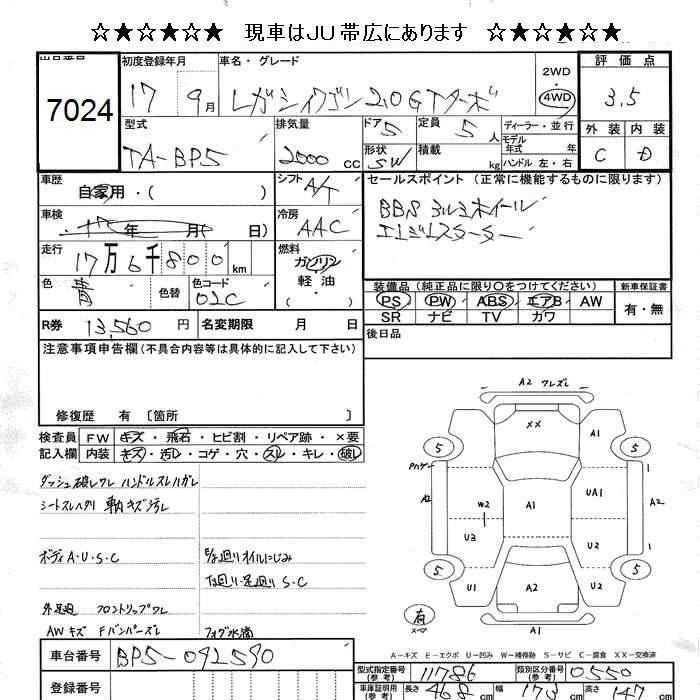 ☆★☆★☆★ 現車はJU帯広にあります ☆★☆★☆★
出品番号 7024
初度登録年月 17 9月
車名・グレード レガシィワゴン 2.0GTターボ
2WD・4WD
評価点 3.5
外装 内装
C D
型式 TA-BP5
排気量 2000 cc
ドア 5
形状 SW
定員 5人
積載 kg
ディーラー・並行
モデル年式 年
ハンドル 左・右
車歴 自家用・( )
シフト A/T
セールスポイント(正常に機能するものに限ります)
BBSアルミホイール
エンジンスターター
車検 年 月( 日)
冷房 AAC
走行 17万6千800km
燃料 ガソリン・軽油・
色 青 色替 色コード 02C
装備品(純正品に限り〇をつけてください)
PS PW ABS エアB AW
SR ナビ TV カワ
新車保証書
有・無
R券 13,560円 名変期限 月 日
後日品
注意事項申告欄(不具合内容等は具体的に記入して下さい)
修復歴 有〔箇所 〕
検査員記入欄
FW キズ・飛石・ヒビ割・リペア跡・×要
内装 キズ・汚レ・コゲ・穴・スレ・キレ・破レ
ダッシュ破レワレ ハンドルスレハガレ
シートスレヘタリ 車内キズ汚レ
ボディA・U・S・C
E/g廻りオイルにじみ
下廻り・足廻りS・C
外足廻 フロントリップワレ
AWキズ Fバンパーズレ フォグ水滴
A2 ワレズレ
XX
5 A1 5
A2 UA1 A2
W2 A1
U3 U2
5 U1 A2 U2 5
有 スペア
A1
A-キズ E-エクボ U-凹み W-補修跡 S-サビ C-腐食 XX-交換済
車台番号 BP5-092590
登録番号
型式指定番号(参考) 11786
類別区分番号(参考) 0550
車庫証明用(参考) 長さ 468cm 幅 173cm 高さ 147cm